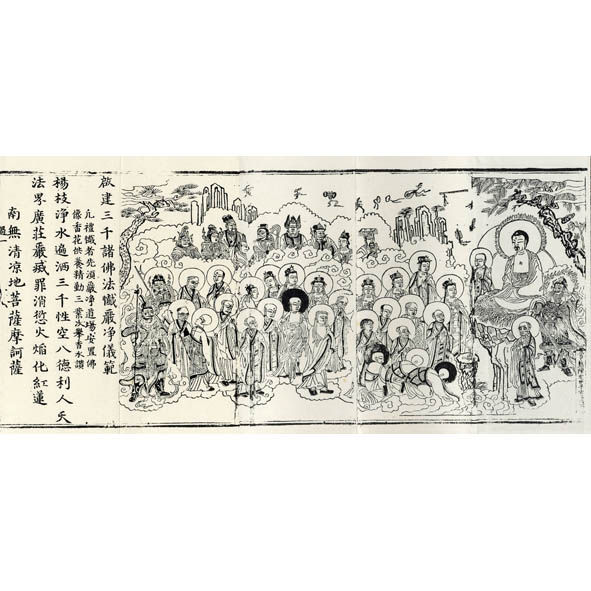 啟建三千諸佛法懺嚴净儀範
凡禮懺者先須嚴净道塲安置佛
像香花供養精勤三業次舉香水讚
楊枝净水遍洒三千性空八德利人天
法界廣莊嚴滅罪消愆火焰化紅蓮
南無清涼地菩薩摩訶薩